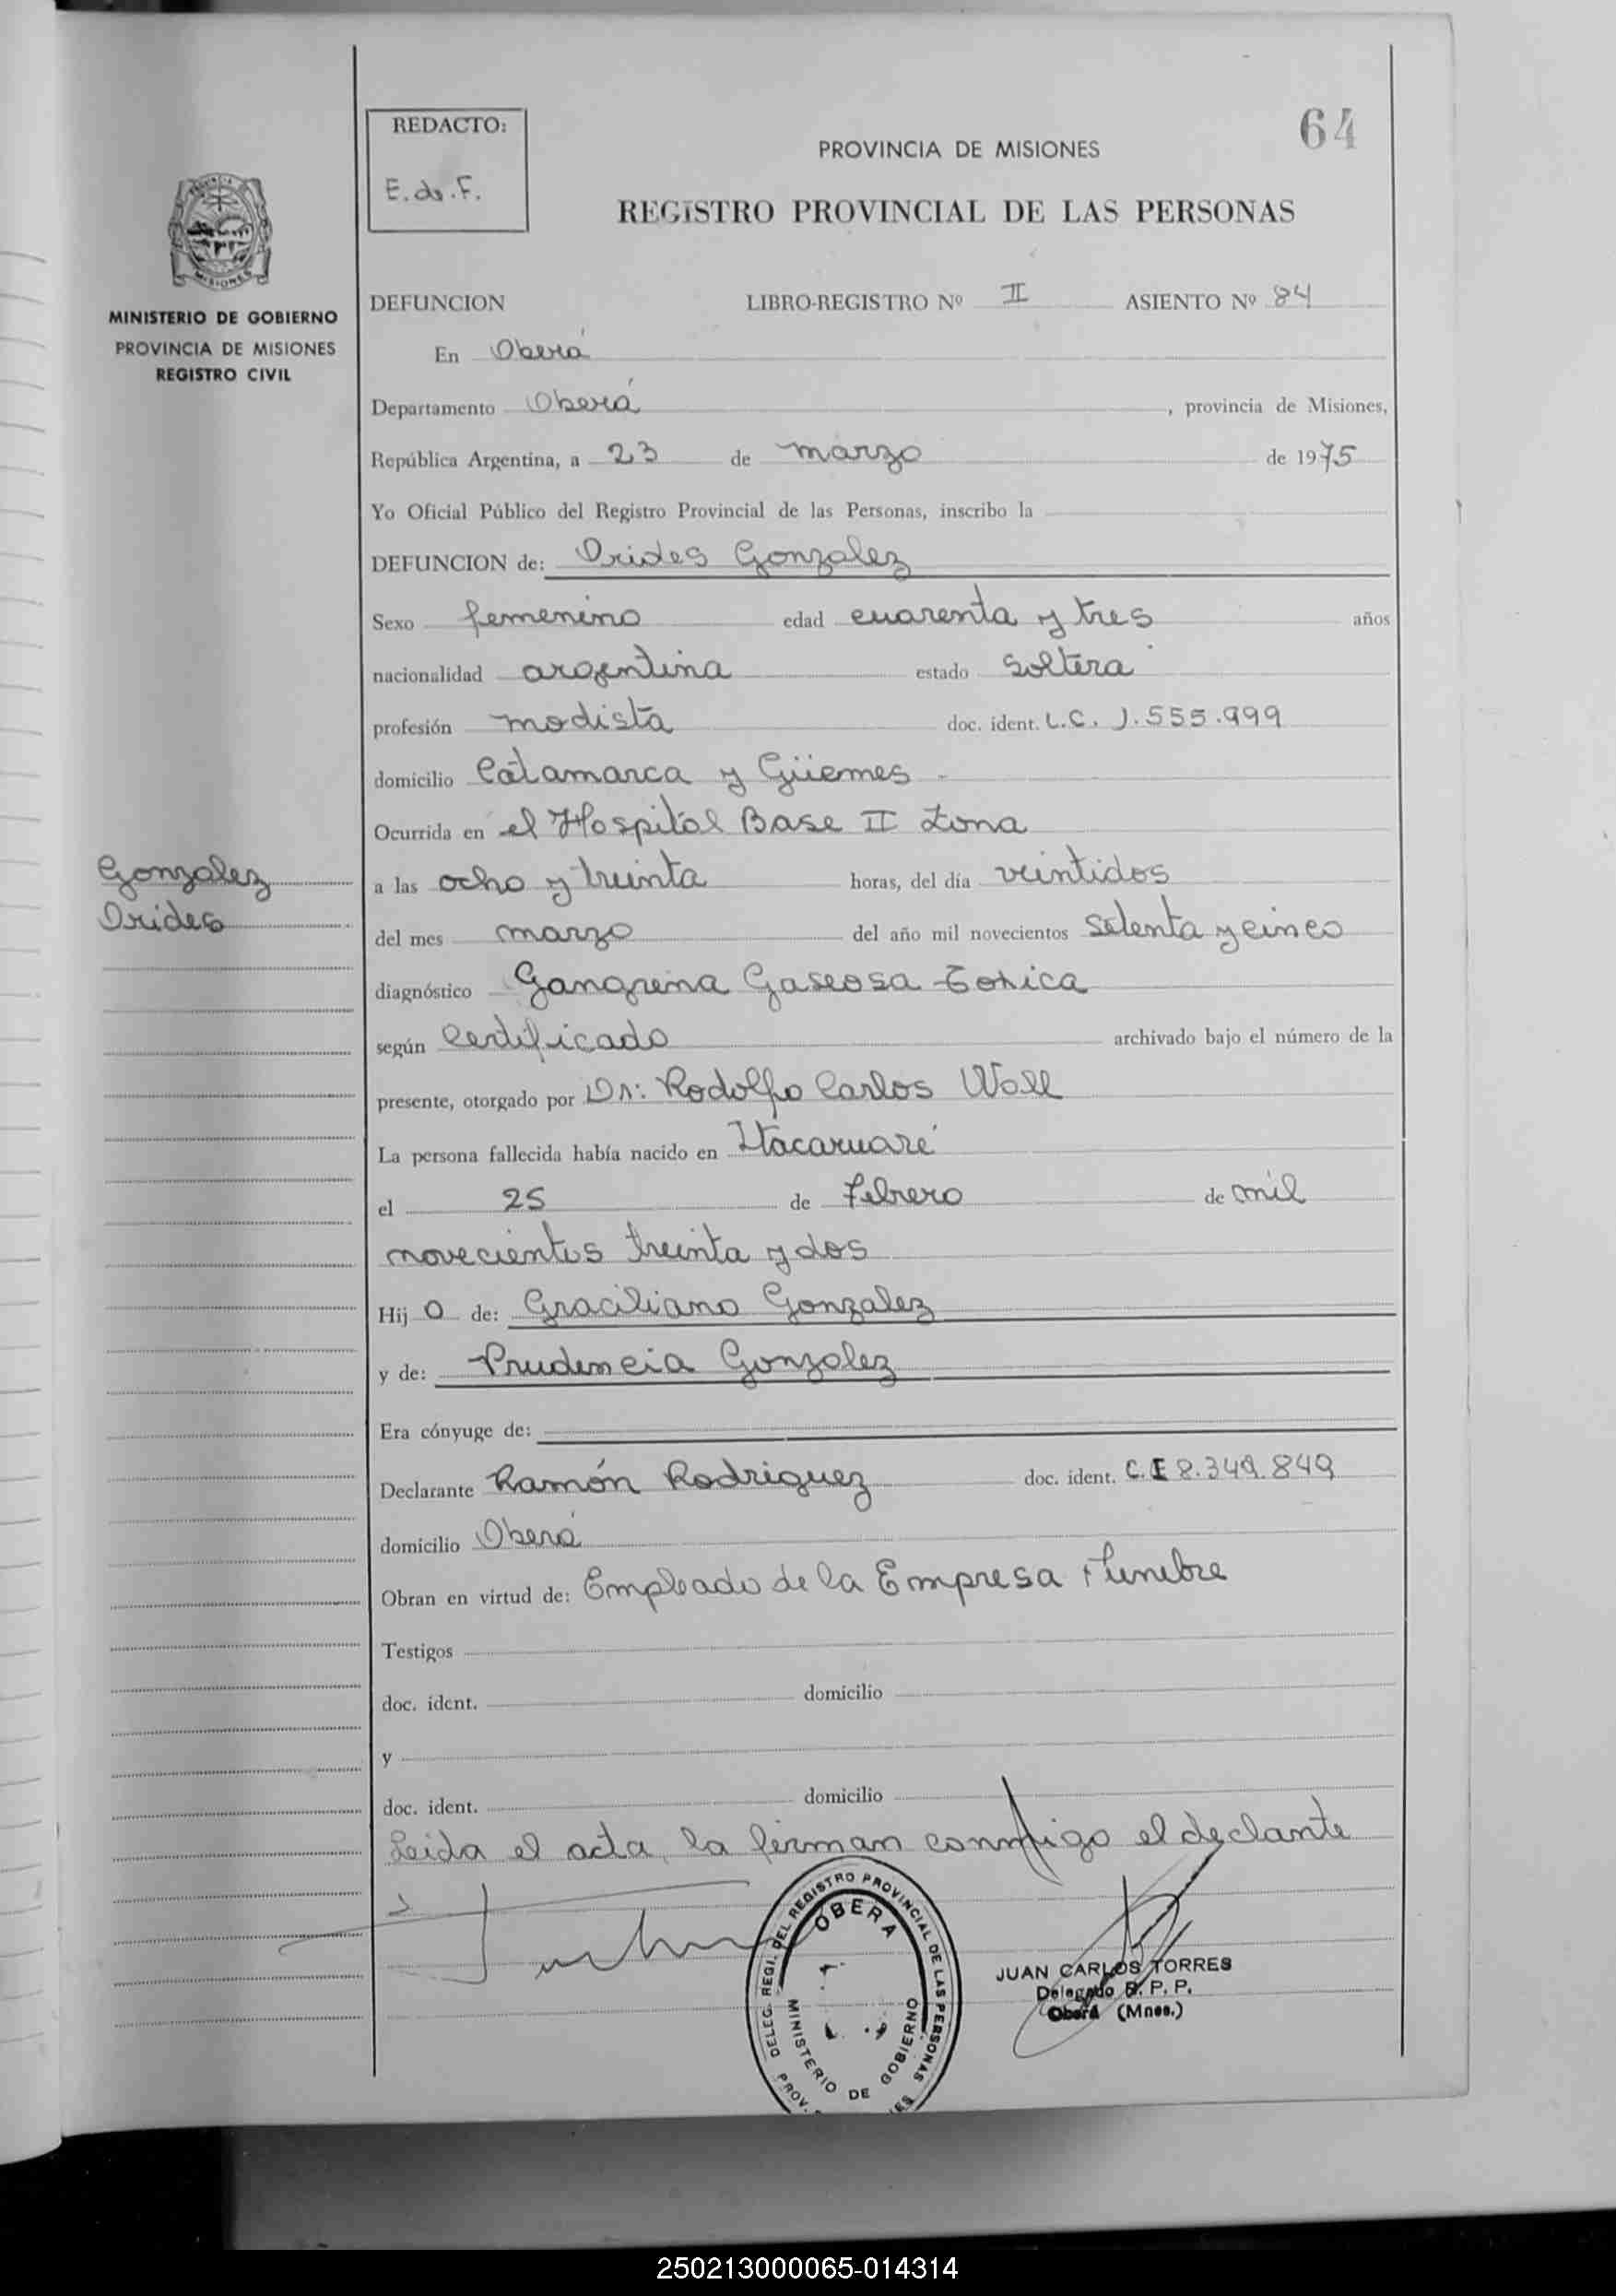 64
REDACTO:
E. de. F.
PROVINCIA DE MISIONES
REGISTRO PROVINCIAL DE LAS PERSONAS
MISIONES
MINISTERIO DE GOBIERNO
PROVINCIA DE MISIONES
REGISTRO CIVIL
DEFUNCION LIBRO-REGISTRO Nº II ASIENTO Nº 84
En Oberá
Departamento Oberá, provincia de Misiones,
República Argentina, a 23 de marzo de 1975
Yo Oficial Público del Registro Provincial de las Personas, inscribo la
DEFUNCION de: Orides Gonzalez
Sexo femenino edad cuarenta y tres años
nacionalidad argentina estado Soltera
profesión modista doc. ident. L.C. 1.555.999
domicilio Catamarca y Güemes -
Ocurrida en el Hospital Base II Zona
Gonzalez
Orides
a las ocho y treinta horas, del día veintidos
del mes marzo del año mil novecientos Setenta y cinco
diagnóstico Gangrena Gaseosa Toxica
según Certificado archivado bajo el número de la
presente, otorgado por Dr: Rodolfo Carlos Wall
La persona fallecida había nacido en Itacaruaré
el 25 de Febrero de mil
novecientos treinta y dos
Hij o de: Graciliano Gonzalez
y de: Prudencia Gonzalez
Era cónyuge de:
Declarante Ramón Rodriguez doc. ident. C.I 8.349.849
domicilio Oberá
Obran en virtud de: Empleado de la Empresa Funebre
Testigos
doc. ident. domicilio
y
doc. ident. domicilio
Leida el acta, la firman conmigo el declante
DELEG. REGI. DEL REGISTRO PROVINCIAL DE LAS PERSONAS
OBERA
MINISTERIO DE GOBIERNO
PROV.
JUAN CARLOS TORRES
Delegado R. P. P.
Oberá (Mnes.)
250213000065-014314